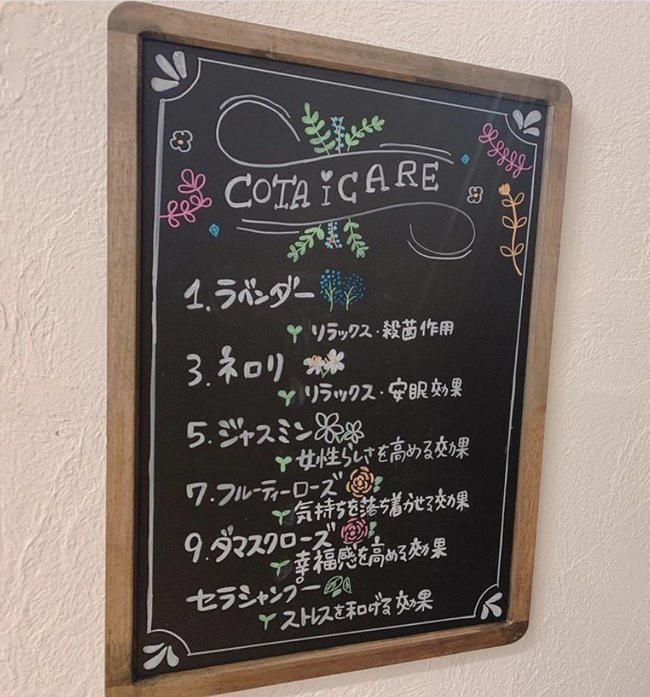 COTA iCARE
1. ラベンダー
リラックス・殺菌作用
3. ネロリ
リラックス・安眠効果
5. ジャスミン
女性らしさを高める効果
7. フルーティーローズ
気持ちを落ち着かせる効果
9. ダマスクローズ
幸福感を高める効果
セラシャンプー
ストレスを和げる効果